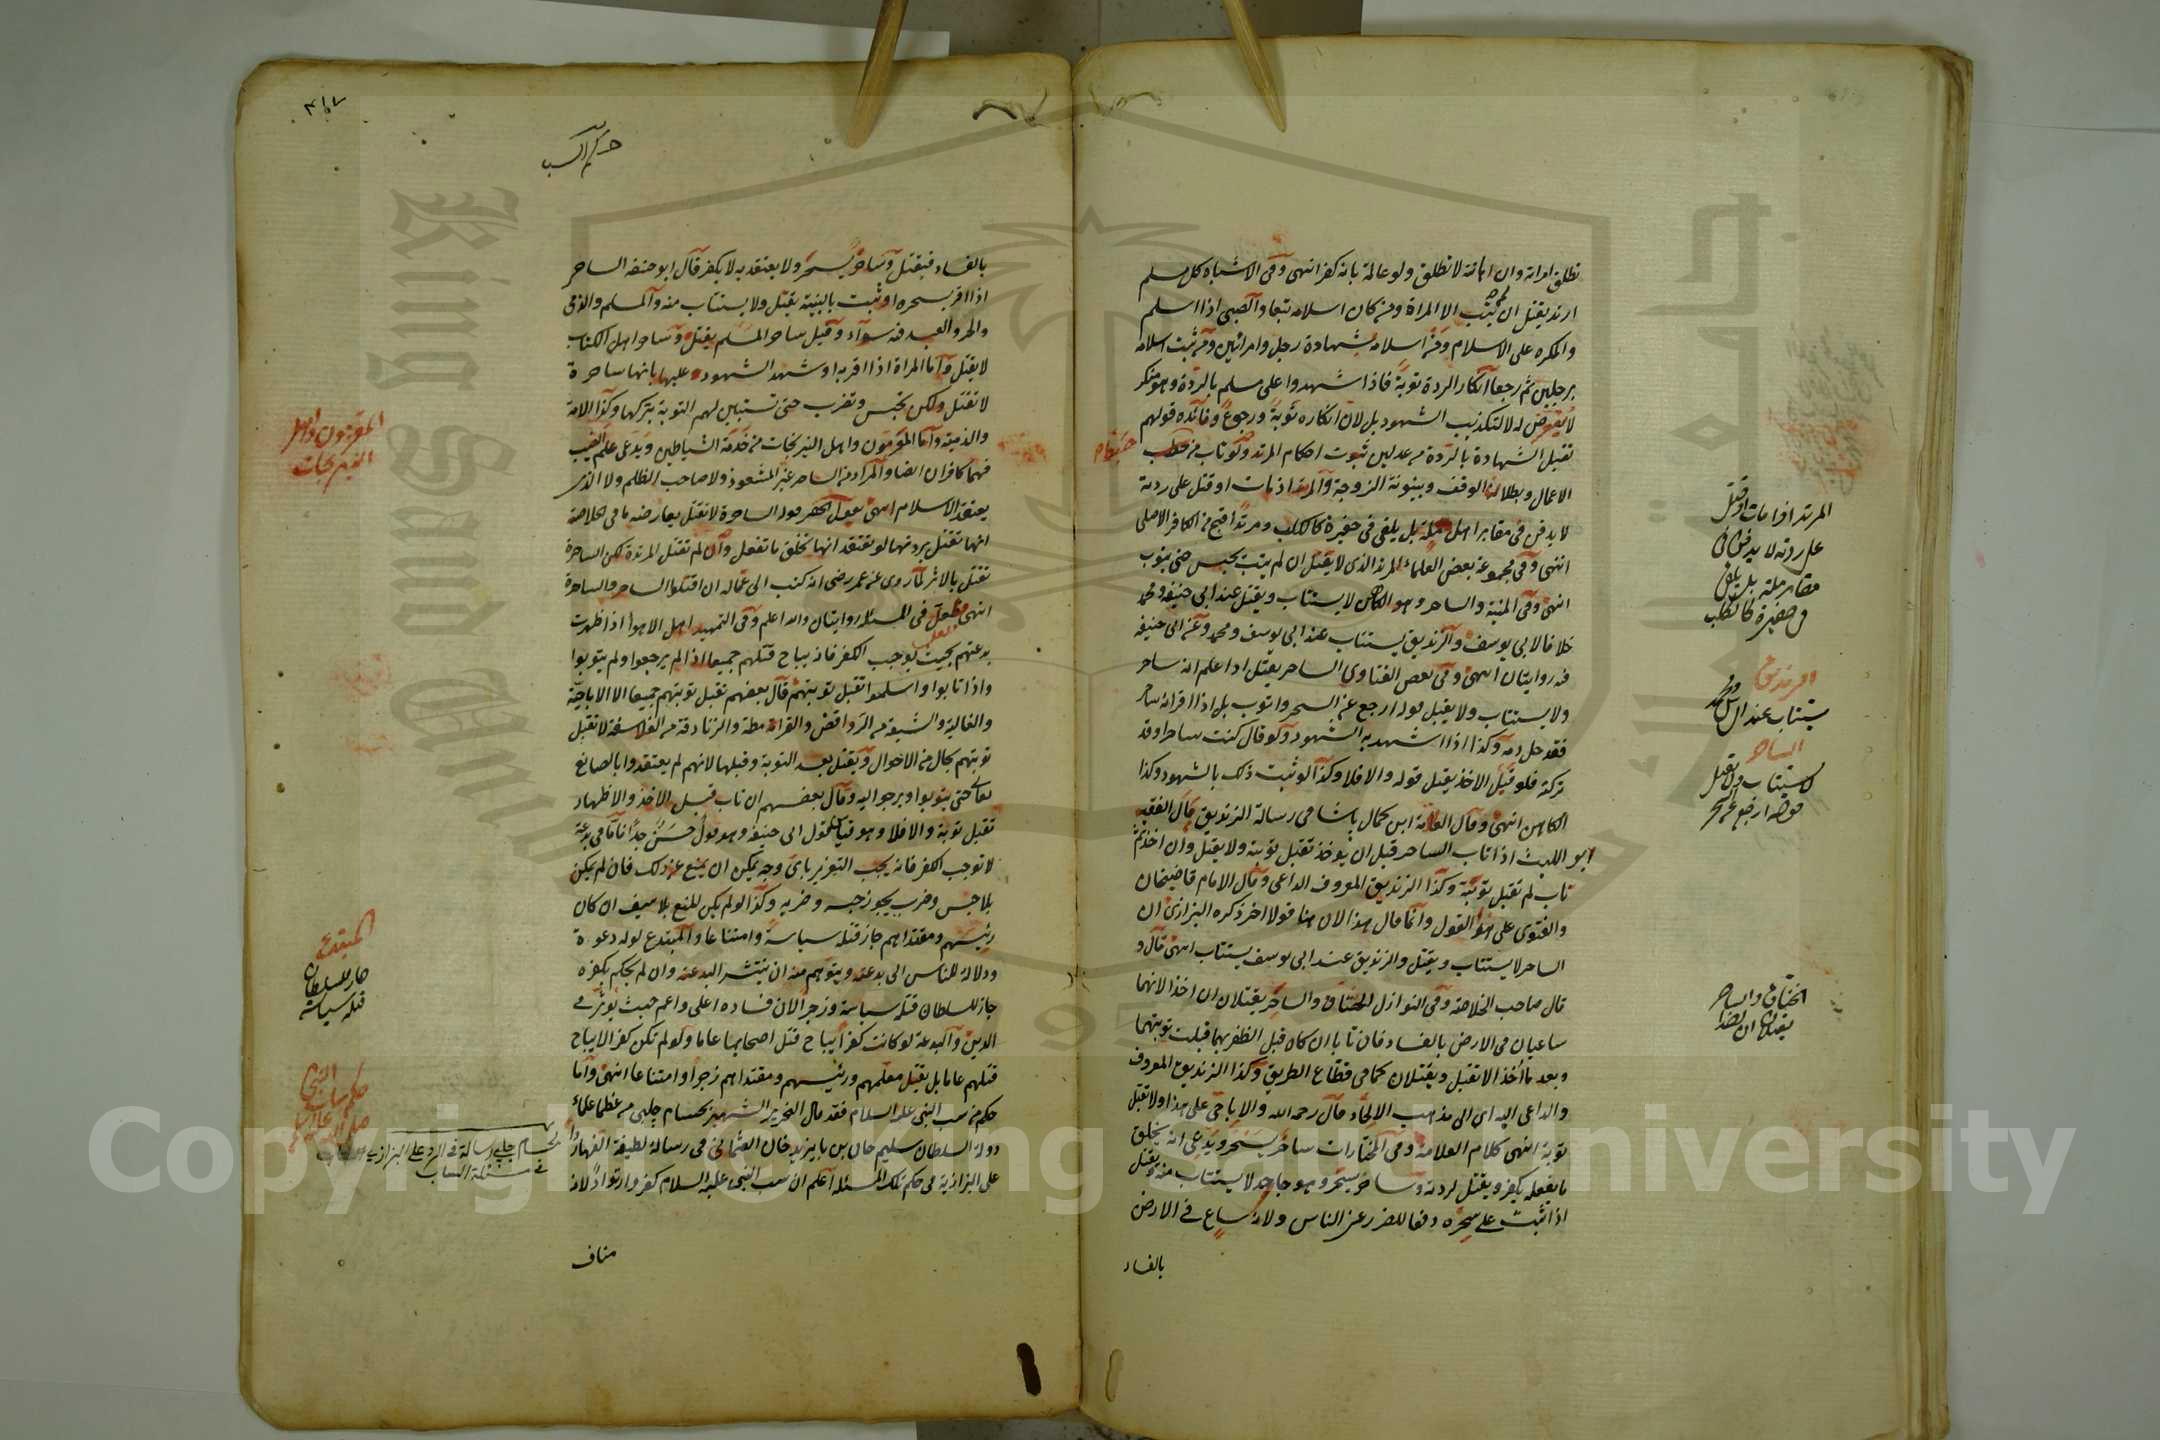 تطلق امراته وان اباتة لا تطلق ولو عالمة بانه كفر انتهى وفى الاشباه كل مسلم
ارتد يقتل ان لم يتب الا المراة ومن كان اسلامه تبعا والصبى اذا اسلم
والمكره على الاسلام ومن اسلامه بشهادة رجل وامراتين ومن ثبت اسلامه
برجلين ثم رجعا انكار الردة توبة فاذا شهدوا على مسلم بالردة وهو منكر
لا يتعرض له لا لتكذيب الشهود بل لان انكاره توبة ورجوع وفائدة قولهم
تقبل الشهادة بالردة من عدلين ثبوت احكام المرتد ولو تاب من حبط
الاعمال وبطلان الوقف وبينونة الزوجة والمرتد اذا مات او قتل على ردته
لا يدفن فى مقابر اهل ملة بل يلقى فى حفيرة كالكلب ومرتدا قبح من الكافر الاصلى
انتهى وفى مجموعة بعض العلماء المرتد الذى لا يقتل ان لم يتب يحبس حتى يتوب
انتهى وفى المنية والساحر وهو الكاهن لا يستتاب ويقتل عند ابى حنيفة ومحمد
خلافا لابى يوسف والزنديق يستتاب عند ابى يوسف ومحمد وعن ابى حنيفة
فيه روايتان انتهى وفى بعض الفتاوى الساحر يقتل اذا علم انه ساحر
ولا يستتاب ولا يقبل قوله ارجع عن السحر واتوب بل اذا اقر انه ساحر
فقد حل دمه وكذا اذا شهد به الشهود ولو قال كنت ساحرا وقد
تركته قبل الاخذ يقبل قوله والا فلا وكذا لو ثبت ذلك بالشهود وكذا
الكاهن انتهى وقال العلامة ابن كمال باشا فى رسالة الزنديق قال الفقيه
ابو الليث اذا تاب الساحر قبل ان يؤخذ تقبل توبته ولا يقتل وان اخذ ثم
تاب لم تقبل توبته وكذا الزنديق المعروف الداعى وقال الامام قاضيخان
والفتوى على هذا القول وانما قال هذا لان هنا قولا اخر ذكره البزازى ان
الساحر لا يستتاب ويقتل والزنديق عند ابى يوسف يستتاب انتهى قال و
قال صاحب الخلاصة وفى النوازل الخناق والساحر يقتلان ان اخذا لانهما
ساعيان فى الارض بالفساد فان تابا ان كان قبل الظفر بهما قبلت توبتهما
وبعد ما اخذ لا تقبل ويقتلان كما فى قطاع الطريق وكذا الزنديق المعروف
والداعى اليه اى الى مذهب الالحاد قال رحمه الله والاباحى على هذا ولا تقبل
توبة انتهى كلام العلامة وفى المختارات ساحر يسحر ويدعى انه يخلق
ما يفعله يكفر ويقتل لردته وساحر يسحر وهو جاحد لا يستتاب منه ويقتل
اذا ثبت على سحره دفعا للضرر عن الناس ولانه ساع فى الارض
بالفساد
حبط عام
المرتد اذا مات او قتل
على ردته لا يدفن فى
مقابر ملة بل يلقى
فى حفيرة كالكلب
الزنديق
يستتاب عند ابى يوسف ومحمد
الساحر
لا يستتاب ولا يقبل
قوله ارجع عن السحر
الخناق والساحر
يقتلان ان اخذا
حكم السب
بالفساد فيقتل وساحر يسحر ولا يعتقد به لا يكفر قال ابو حنيفة الساحر
اذا اقر بسحره او ثبت بالبينة يقتل ولا يستتاب منه والمسلم والذمى
والحر والعبد فيه سواء وقيل ساحر المسلم يقتل وساحر اهل الكتاب
لا يقتل واما المراة اذا اقر به او شهد الشهود عليها بانها ساحرة
لا تقتل ولكن تحبس وتضرب حتى تستبين لهم التوبة بتركها وكذا الامة
والذمية واما المقرمون واهل النيرنجات من خدمة الشياطين ويدعى علم الغيب
فهما كافران ايضا والمراد من الساحر غير المشعوذ ولا صاحب الطلسم ولا الذى
يعتقد الاسلام انتهى يقول الحقير قوله الساحرة لا تقتل يعارضه ما فى الخلاصة
انها تقتل بردتها لو تعتقد انها تخلق ما تفعل وان لم تقتل المرتدة لكن الساحرة
تقتل بالاثر لما روى عن عمر رضى انه كتب الى عماله ان اقتلوا الساحر والساحرة
انتهى فلعل فى المسئلة روايتان والله اعلم وفى التمهيد اهل الاهوا اذا ظهرت
بدعتهم بحيث يوجب الكفر فانه يباح قتلهم جميعا اذا لم يرجعوا ولم يتوبوا
واذا تابوا واسلموا تقبل توبتهم قال بعضهم تقبل توبتهم جميعا الا الاباحية
والغالية والشيعة من الروافض والقرامطة والزنادقة من الفلاسفة لا تقبل
توبتهم بحال من الاحوال ويقتل بعد التوبة وقبلها لانهم لم يعتقدوا بالصانع
تعالى حتى يتوبوا ويرجوا اليه وقال بعضهم ان تاب قبل الاخذ والاظهار
تقبل توبة والا فلا وهو قياس قول ابى حنيفة وهو قول حسن جدا فاما فى بدعة
لا توجب الكفر فانه يجب التعزير باى وجه يمكن ان يمنع عن ذلك فان لم يمكن
بلا حبس وضرب يجوز حبسه وضربه وكذا لو لم يكن للمنع بلا سيف ان كان
رئيسهم ومقتداهم جاز قتله سياسة وامتناعا والمبتدع لو له دعوة
ودلالة للناس الى بدعته ويتوهم منه ان ينتشر البدعة وان لم يحكم بكفره
جاز للسلطان قتله سياسة وزجرا لان فساده اعلى واعم حيث يؤثر فى
الدين والبدعة لو كانت كفرا يباح قتل اصحابها عاما ولو لم تكن كفرا لا يباح
قتلهم عاما بل يقتل معلمهم ورئيسهم ومقتداهم زجرا وامتناعا انتهى واما
حكم من سب النبى عليه السلام فقد قال النحرير الشهير بحسام چلبى من عظما علماء
دولة السلطان سليم خان بن بايزيد خان العثمانى فى رسالة لطيفة الفها ردا
على البزازية فى حكم تلك المسئلة اعلم ان سب النبى عليه السلام كفر وارتداد لانه
مناف
المقرمون واهل
النيرنجات
المبتدع
جاز للسلطان
قتله سياسة
حكم ساب النبى
لحسام چلبى رسالة فى الرد على البزازى
فى مسئلة الساب